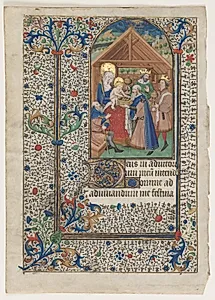 Deus in adiutor
ium meū intend
e Domine ad
adiuuandum me festina